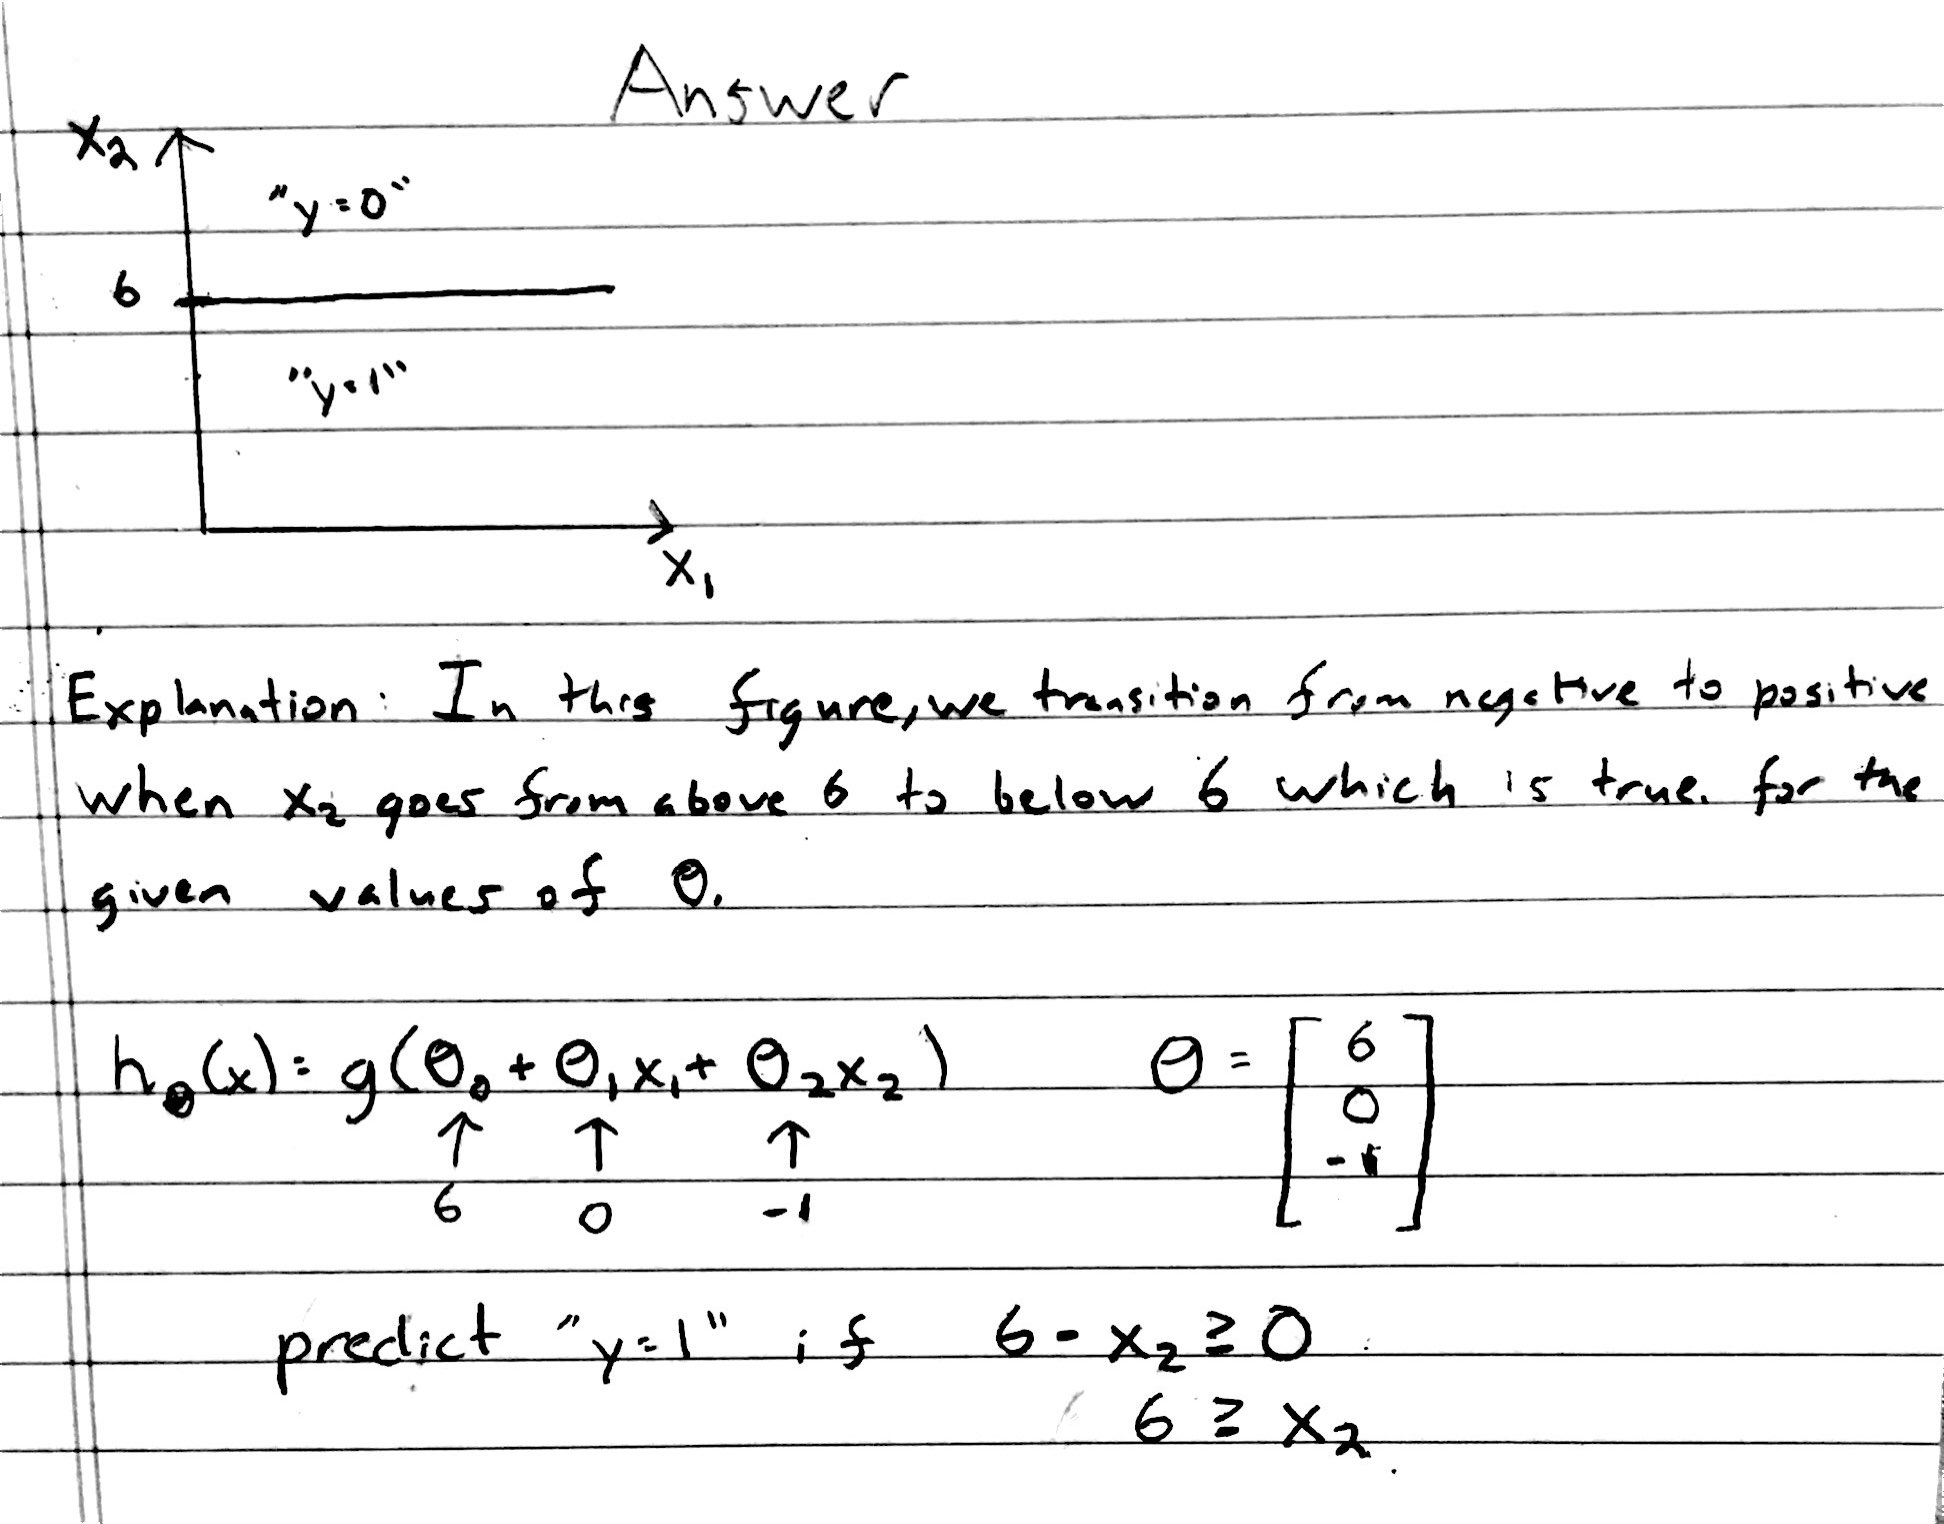 Answer
x₂
"y=0"
6
"y=1"
x₁
Explanation: In this figure, we transition from negative to positive
when x₂ goes from above 6 to below 6 which is true. for the
given values of θ.
h_θ(x) = g(θ₀ + θ₁x₁ + θ₂x₂)
↑ ↑ ↑
6 0 -1
θ = [6
0
-1]
predict "y=1" if 6 - x₂ ≥ 0
6 ≥ x₂